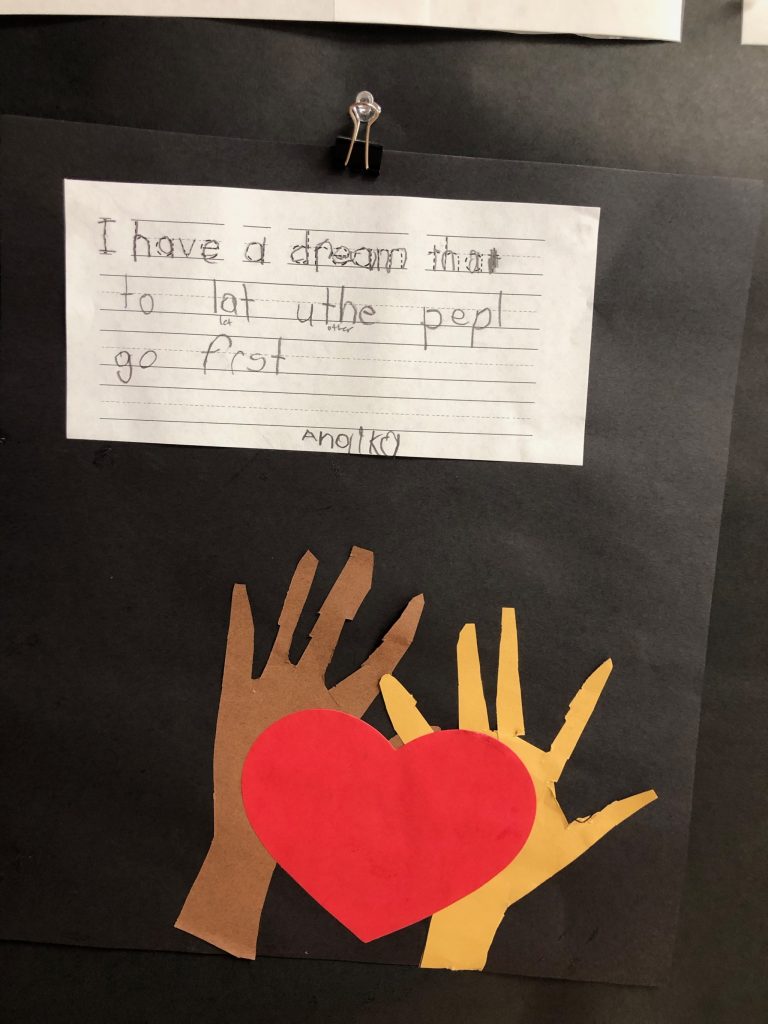 I have a dream that
to lat uthe pepl
let other
go frst
Analka